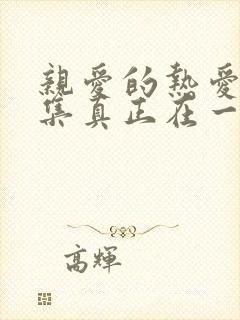 親愛的熱愛
集真正在一
高輝